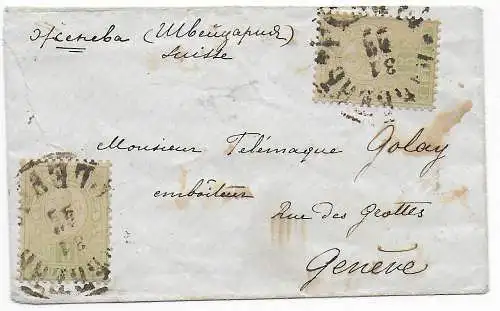 Женева (Швейцария)
Suisse
31
Monsieur Télémaque Golay
emboîteur
Rue des Grottes
Genève
31